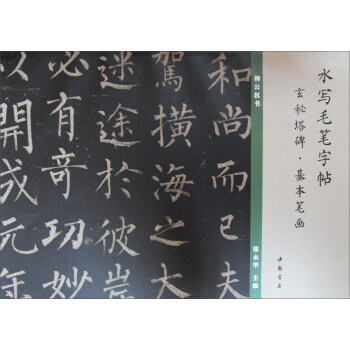 水写毛笔字帖
玄秘塔碑·基本笔画
中国书店
柳公权书
张永华 主编
和尚而已夫
駕横海之大
迷途於彼岸
必有奇功妙
以開成元年